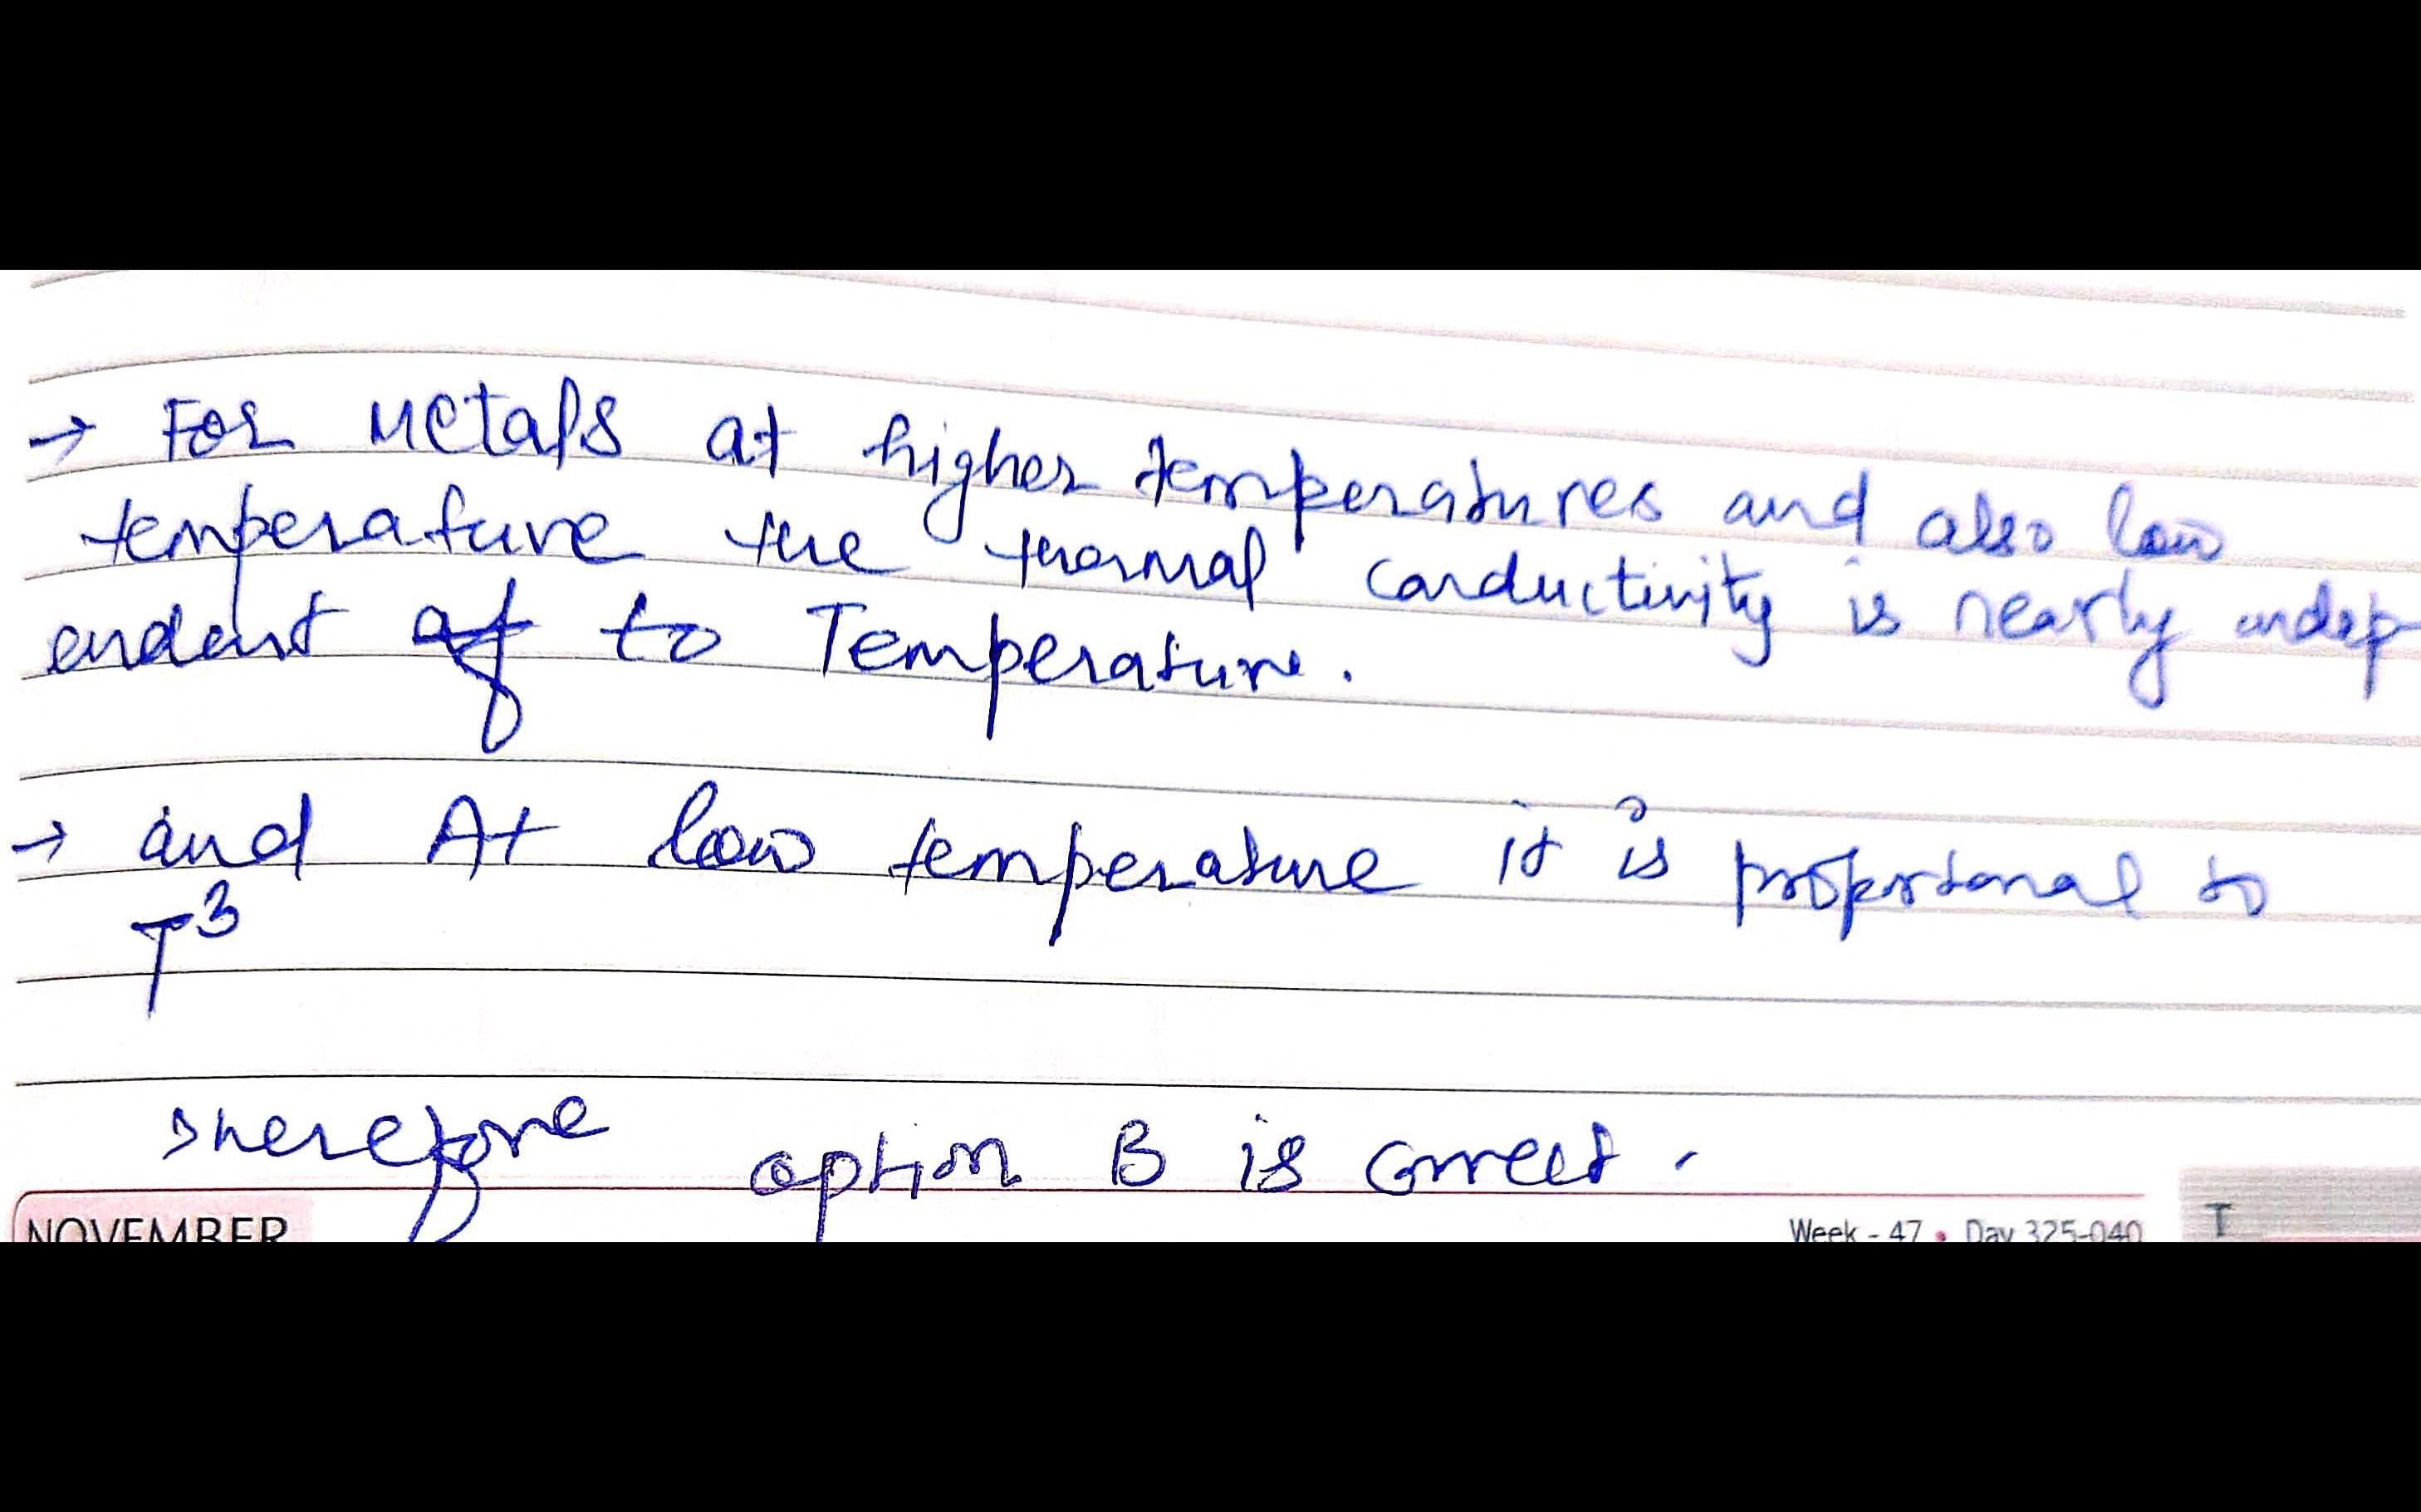 → For Metals at higher temperatures and also low
temperature the thermal conductivity is nearly indep-
endent of to Temperature.
→ and At low temperature it is proportional to
T³
therefore option B is correct.
NOVEMBER Week - 47 • Day 325-040